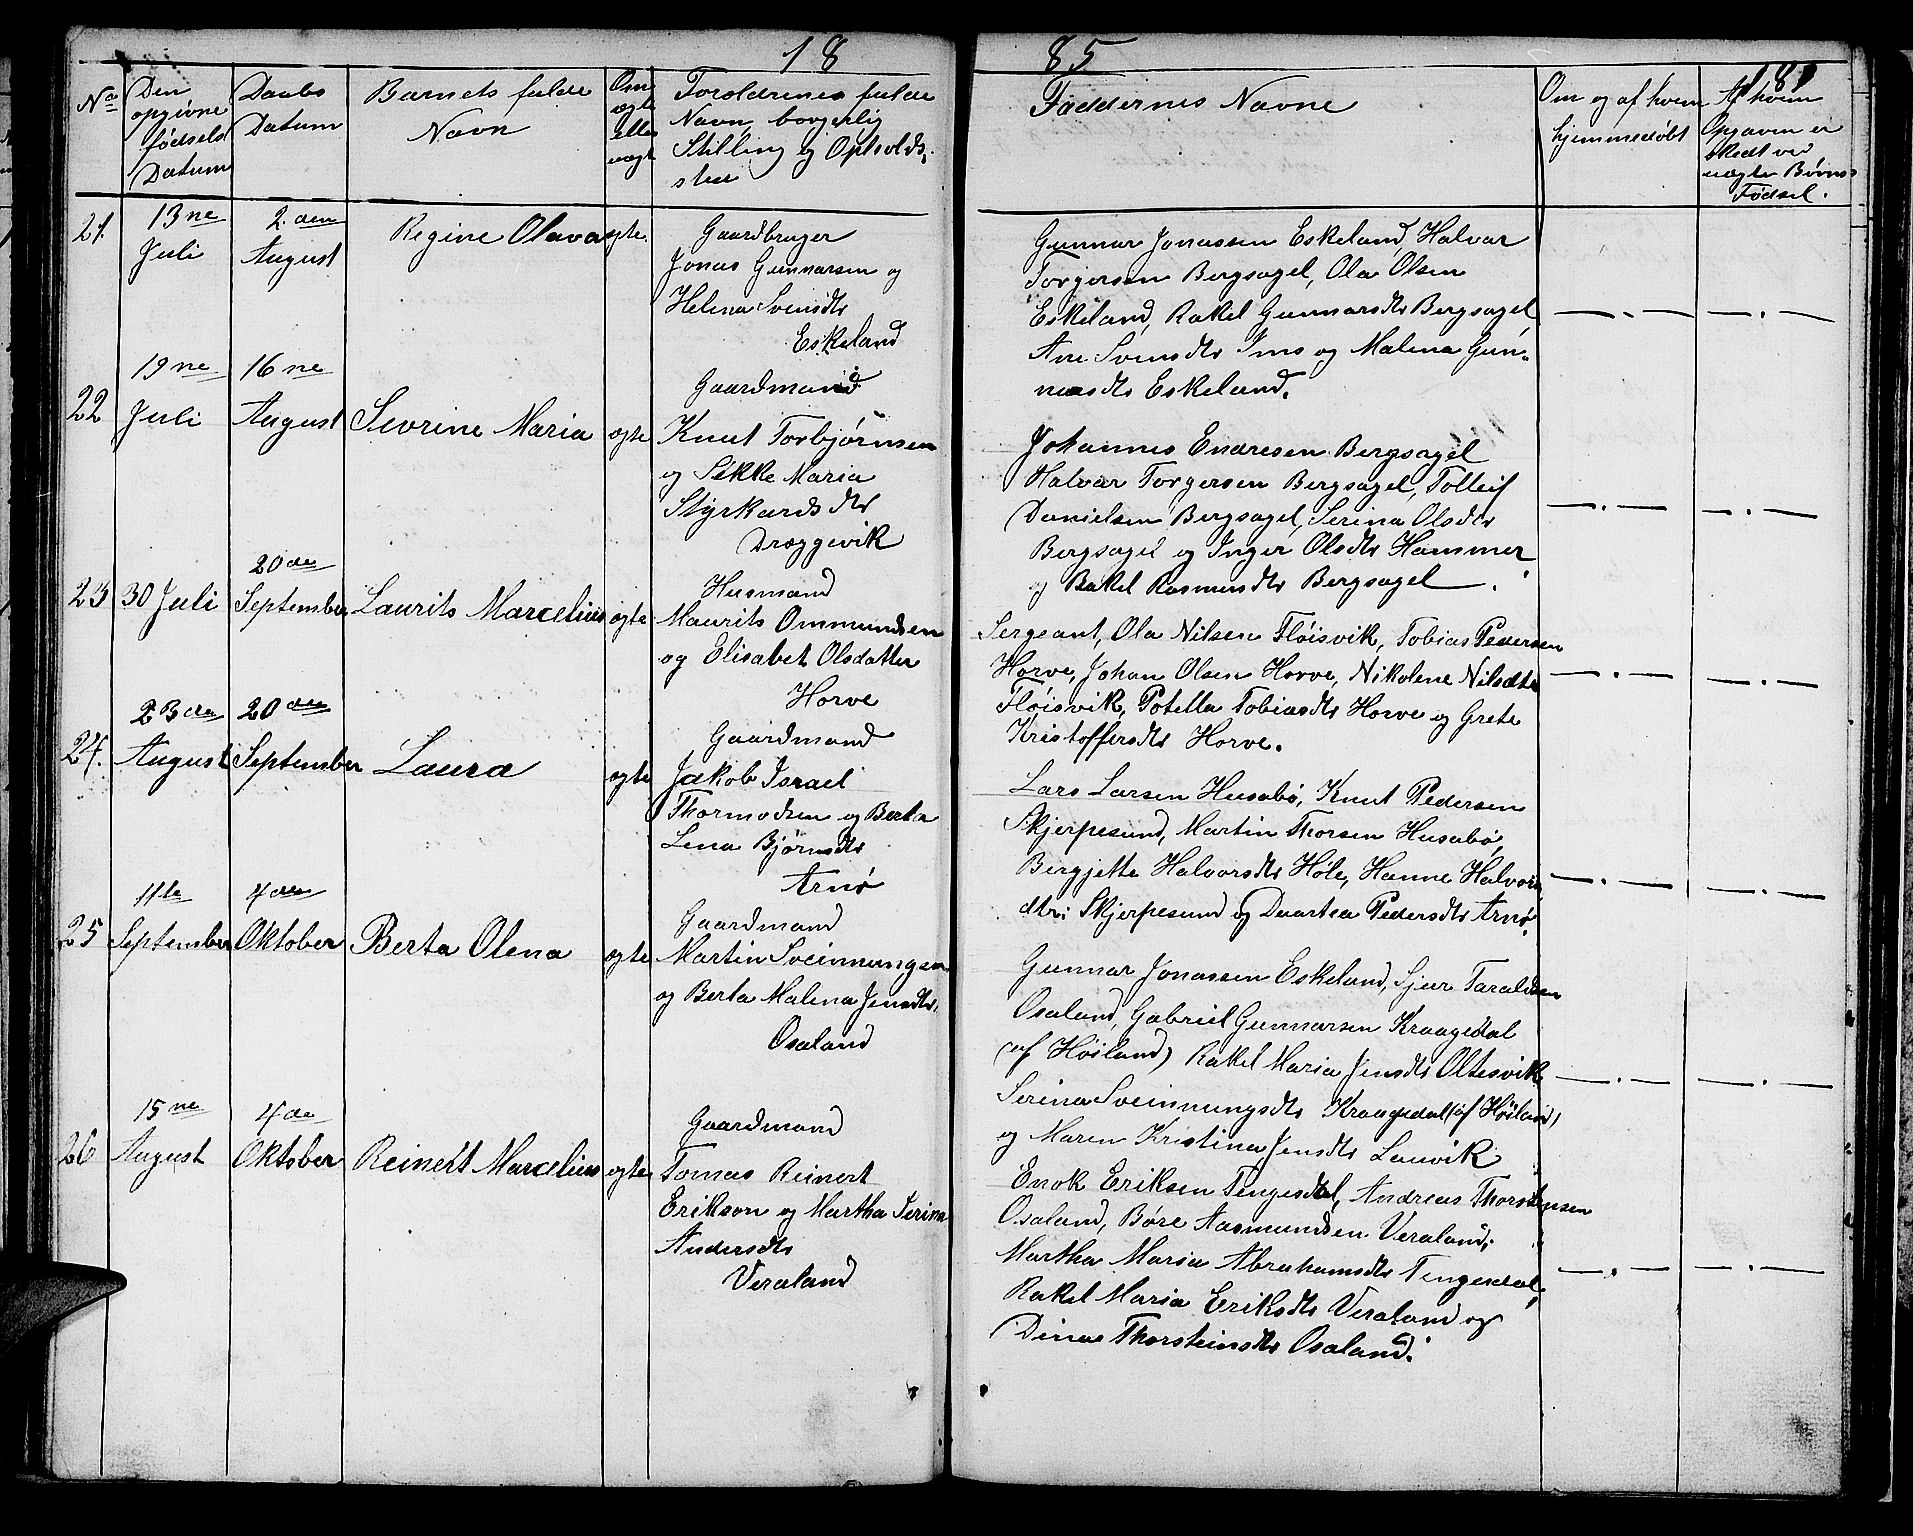 18 85
181
No
Den opgivne fødsels Datum
Daabs Datum
Barnets fulde Navn
Om ægte eller uægte
Foroldrenes fulde Navn, borgerlig Stilling og Opholds, sted
Faddernes Navne
Om og af hvem hjemmedøbt
Af hvem Opgaven er skedt ved uægte Børns Fødsel.
21. 13ne Juli
2. den August
Regine Olava
ægte.
Gaardbruger
Jonas Gunnarsen og
Helena Svensdtr
Eskeland
Gunnar Jonassen Eskeland, Halvar
Torgersen Bergsagel, Ola Olsen
Eskeland, Rakel Gunnarsdtr Bergsagel
Ane Svensdtr Ims og Malena Gun-
narsdtr Eskeland.
22 19ne Juli
16ne August
Sevrine Maria
ægte
Gaardmand
Knut Torbjørnsen
og Sikke Maria
Styrkards dtr
Dræggevik
Johannes Endresen Bergsagel
Halvar Torgersen Bergsagel, Tolleif
Danielsen Bergsagel, Serina Olsdtr
Bergsagel og Inger Olsdtr Hammer
og Rakel Rasmusdtr Bergsagel
23 30 Juli
20de September
Laurits Marcelius
ægte
Husmand
Maurits Ommundsen
og Elisabet Olsdatter
Horve
Sergeant, Ola Nilsen Fløisvik, Tobias Pedersen
Horve, Johan Olsen Horve, Nikolene Nilsdtr
Fløisvik, Potella Tobiasdtr Horve og Grete
Kristoffersdtr Horve.
24. 23de August
20de September
Laura
ægte
Gaardmand
Jakob Israel
Thormodsen og Berta
Lena Bjørnsdtr
Arnø
Lars Larsen Husabø, Knut Pedersen
Skjerpesund, Martin Thorsen Husabø,
Bergjette Halvorsdtr Høle, Hanne Halvors
dtr: Skjerpesund og Daartea Pedersdtr Arnø.
25 11te September
4de Oktober
Berta Olena
ægte
Gaardmand
Martin Sveinungsen
og Berta Malena Jensdtr.
Osaland
Gunnar Jonassen Eskeland, Sjur Taraldsen
Osaland, Gabriel Gunnarsen Kraagedal
(af Høiland) Rakel Maria Jensdtr Oltesvik
Serina Sveinnungsdtr Kraagedal (af Høiland)
og Maren Kristina Jensdtr Lauvik
26 15ne August
4de Oktober
Reinert Marcelius
ægte
Gaardmand
Tomas Reinert
Erikson og Martha Serina
Andersdtr
Veraland
Enok Eriksen Tengesdal, Andreas Thorstensen
Osaland, Børe Aasmundsen Veraland;
Martha Maria Abrahamsdtr Tengesdal,
Rakel Maria Eriksdtr Veraland og
Dinas Thorsteinsdtr Osaland.